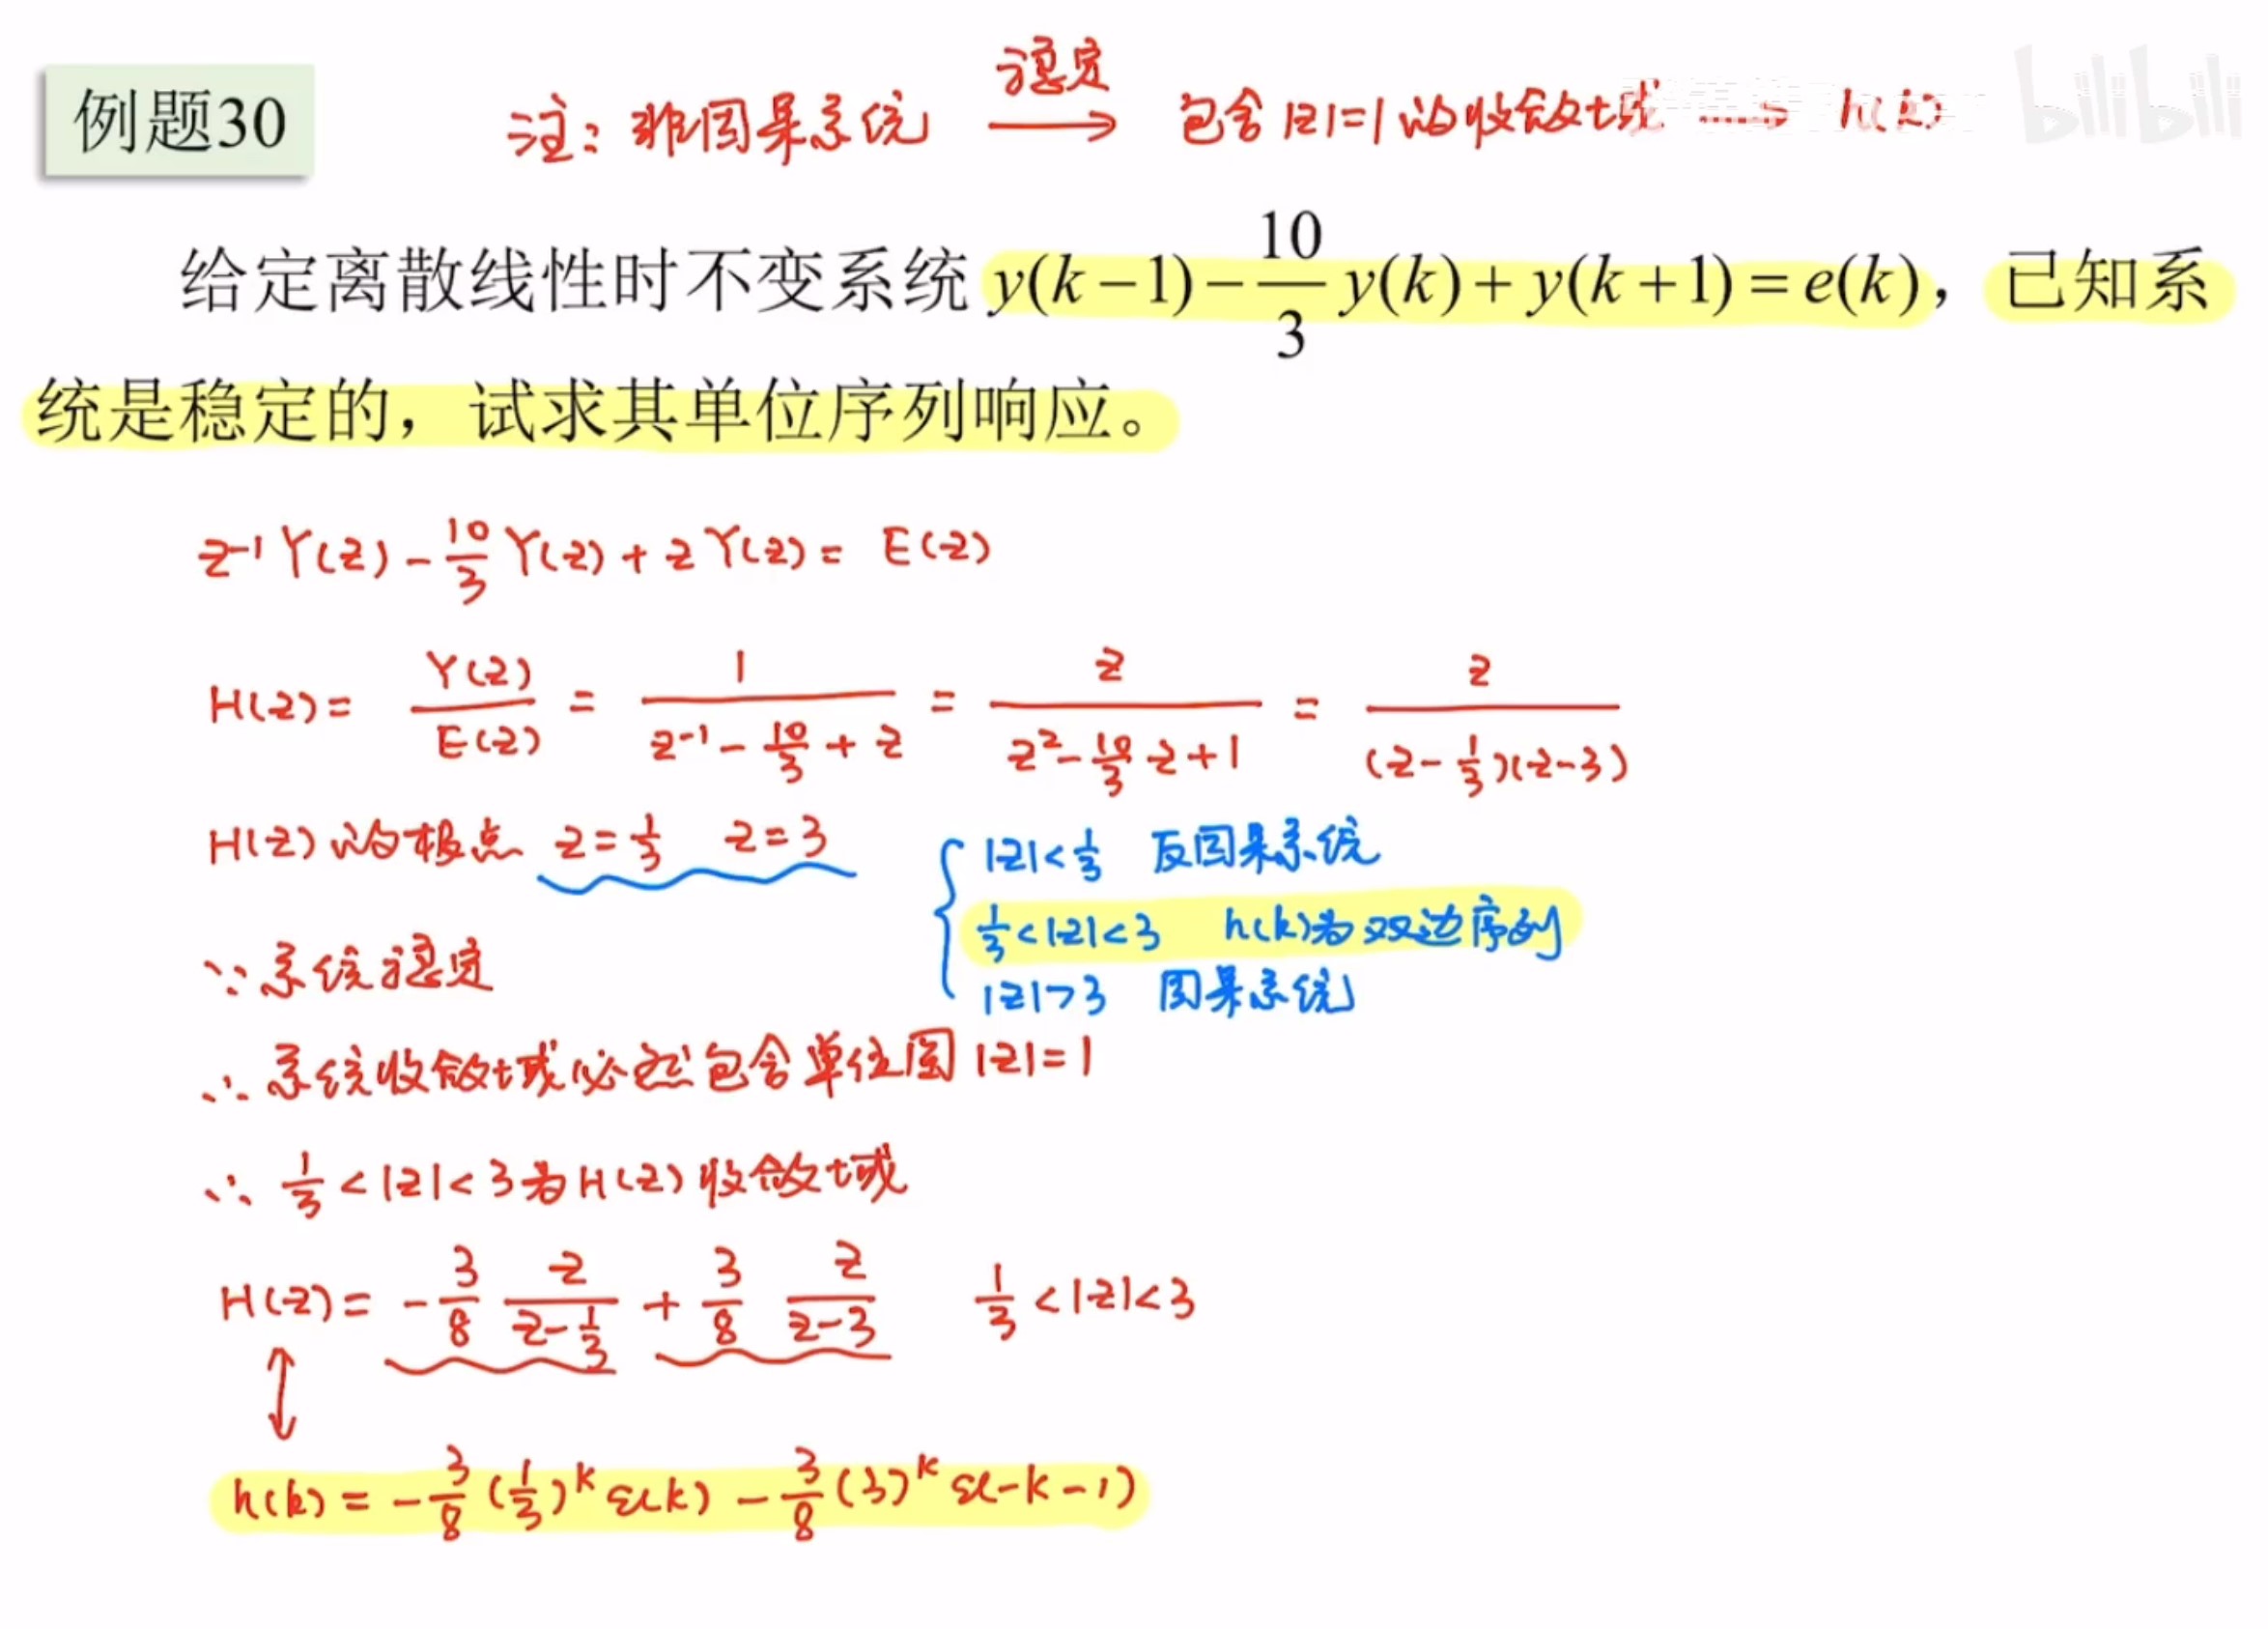 例题30
注：非因果系统 稳定→ 包含|z|=1的收敛域 h(k)
bilibili
给定离散线性时不变系统 y(k−1)−10/3 y(k)+y(k+1)=e(k)，已知系
统是稳定的，试求其单位序列响应。
z⁻¹Y(z) − 10/3 Y(z) + zY(z) = E(z)
H(z) = Y(z)/E(z) = 1/(z⁻¹ − 10/3 + z) = z/(z² − 10/3 z + 1) = z/((z − 1/3)(z − 3))
H(z)的极点 z=1/3 z=3
|z|<1/3 反因果系统
1/3<|z|<3 h(k)为双边序列
|z|>3 因果系统
∵系统稳定
∴系统收敛域必然包含单位圆|z|=1
∴ 1/3<|z|<3为H(z)收敛域
H(z) = −3/8 z/(z − 1/3) + 3/8 z/(z − 3) 1/3<|z|<3
↕
h(k) = −3/8 (1/3)ᵏ ε(k) − 3/8 (3)ᵏ ε(−k−1)